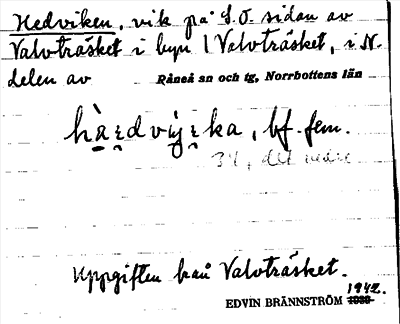 Hedviken, vik på S.O. sidan av
Valvträsket i byn Valvträsket, i N.
delen av Råneå sn och tg, Norrbottens län
bf. fem.
34, det nedre
Uppgiften från Valvträsket.
1942.
EDVIN BRÄNNSTRÖM 1939